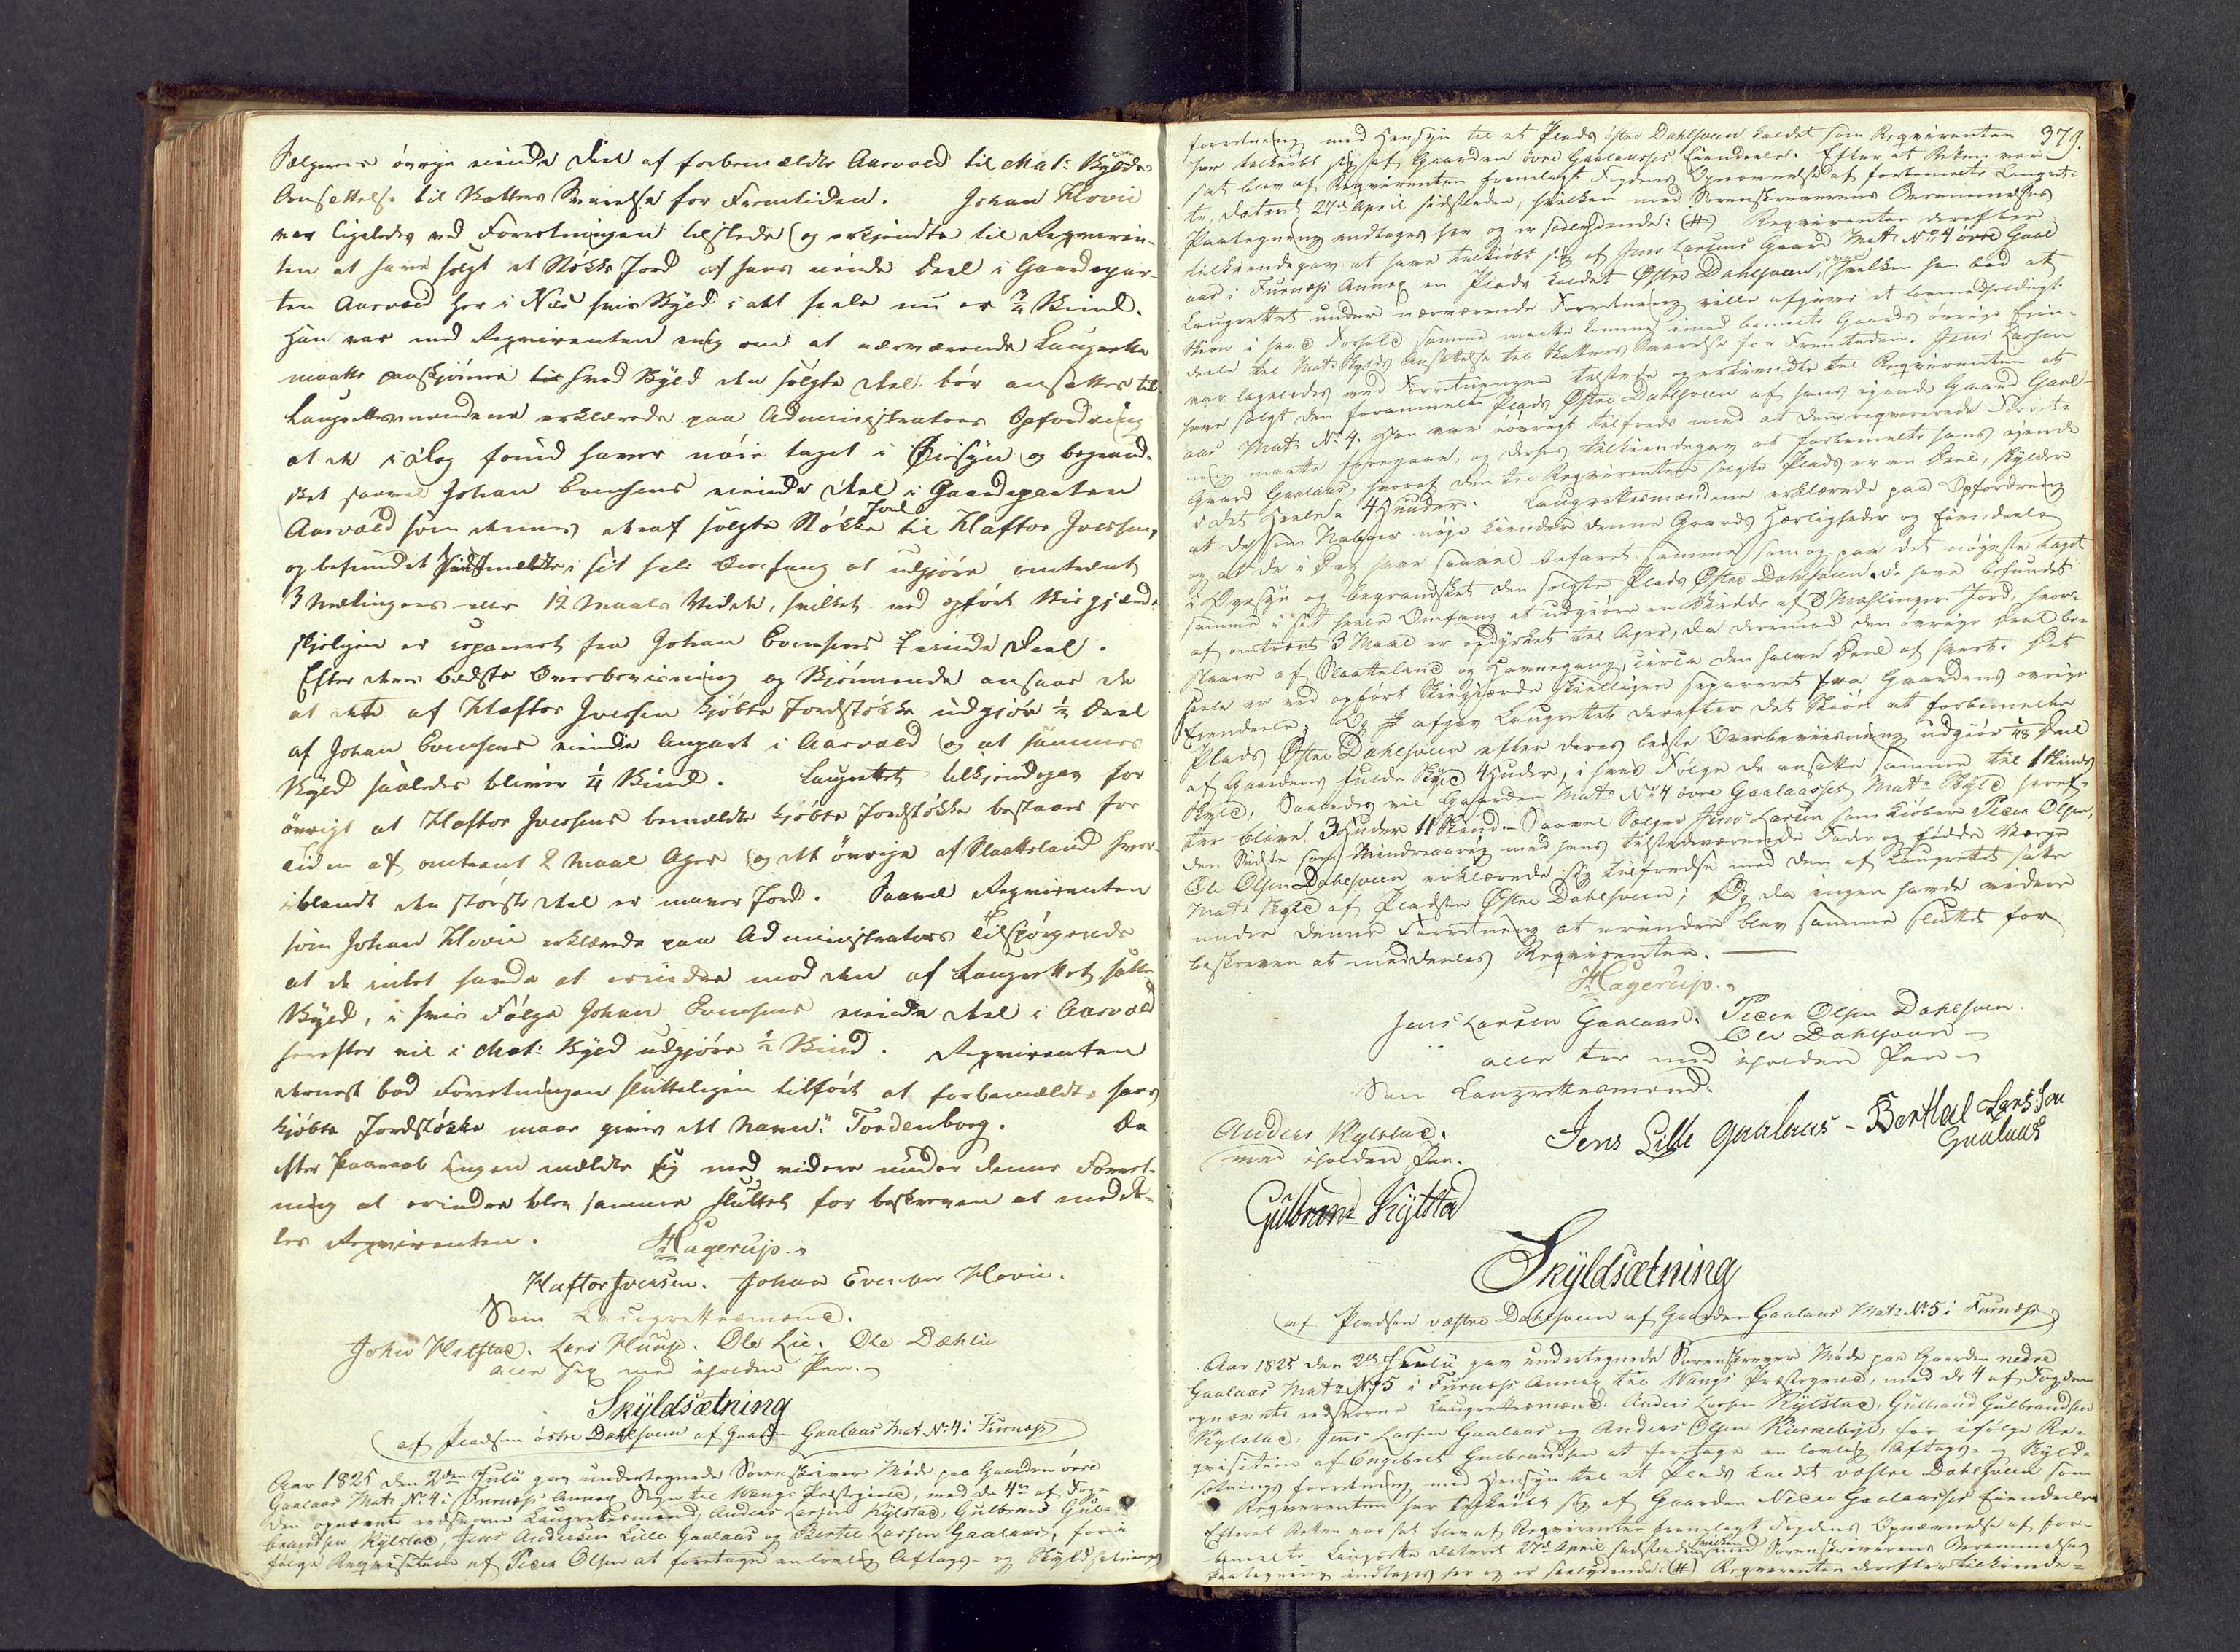 Sælgerens övrige eiende Deel af forbemældte Aasvold til Mat: Skylds
Ansættelse til Skatters Svarelse for Fremtiden. Johan Hovie
var ligeledes ved Forretningen tilstede og erkjendte til Reqvirin-
ten at have solgt et Støkke Jord af hans eiende Deel i Gaardepar-
ten Aasvold her i Næs hvis Skyld i alt hele nu er Skind.
Han var med Reqvirenten enig om at nærværende Laugrette
maatte paaskjönne hvad Skyld den solgte Deel bör ansættes til
Laugrettesmændene erklærede paa Administrators Opfordring
at de i Dag forud haver nöie taget i Öiesyn og begrand-
sket saavel Johan Evensens eiende Deel i Gaardeparten
Aasvold som dennes deraf solgte Støkke Jord til Haftor Iversen,
og befundet sidstmeldte i sit hele Omfang at udgjöre omtrent
3 Mælinger eller 12 Maals Vidde, hvilket ved opfört Skigjærd
skjeligen er separeret fra Johan Evensens eiende Deel.
Efter deres bedste Overbeviisning og Skjönnende ansaae de
at dette af Haftor Iversen kjöbte Jordstökke udgjör ½ Deel
af Johan Evensens eiende Anpart i Aasvold og at sammes
Skyld saaledes bliver ¼ Skind. Laugrettet tilkjendegav for
övrigt at Haftor Iversens bemældte kjöbte Jordstökke bestaaer for
Tiden af omtrent 2 Maal Ager og det övrige af Slaatteland hvor-
iblandt den störste Deel er mager Jord. Saavel Reqvirenten
som Johan Hovie erklærede paa Administrators Tilspörgende
at de intet havde at erindre mod den af Laugrettet satte
Skyld, i hvis Fölge Johan Evensens eiende Deel i Aasvold
herefter vil i Mat: Skyld udgjöre ½ Skind. Reqvirenten
dernest bad Forretningen slutteligen tilfört at forbemældte hans
kjöbte Jordstökke maae gives det Navn: Tordenborg. Da
efter Paaraab Ingen meldte sig med videre under denne Forret-
ning at erindre blev samme sluttet for beskreven at medde-
les Reqvirenten. Hagerup.
Haftor Iversen. Johan Evensen Hovie.
Som Laugrettesmænd.
John Helstad. Lars Huuse. Ole Lie. Ole Dæhlie
alle sex med iholden Pen.
Skyldsætning
af Pladsen östre Dahlsveen af Gaarden Gaalaas Mat. No 4 i Furnæs
Aar 1825 den 2den Julii gav undertegnede Sorenskriver Möde paa Gaarden övre
Gaalaas Matr. No 4 i Furnæs Annex Sogn til Wangs Præstegield, med de 4re af Fog-
den opnævnte eedsvorne Laugrettesmænd, Anders Larsen Kylstad, Gulbrand Gul-
brandsen Kylstad, Jens Andersen Lille Gaalaas og Berthel Larsen Gaalaas, for i
følge Reqvisition af Peder Olsen at foretage en lovlig Aftags- og Skyldsætnings
379.
forretning med Hensyn til et Plads östre Dahlsveen kaldet som Reqvirenten
har tilkiöbt sig af Gaarden övre Gaalaasses Eiendeele. Efter at Retten var
sat blev af Reqvirenten fremlagt Fogdens Opnævnelse af forbemeldte Laugret-
te, dateret 27de April sidstleden, hvilken med Sorenskriverens Berammelses
Paategning indtages her og er saalydende: (#) Reqvirenten derefter
tilkiendegav at have tilkiöbt sig af Jens Larsens Gaard Matr. No 4 övre Gaal
aas i Furnæs Annex en Plads kaldet Östre Dahlsveen, hvilken han bad at
Laugrettet under nærværende Forretning ville afgive et lovmedholdigt
Skiön i hvad Forhold samme maatte komme imod bemeldte Gaards övrige Eien-
deele til Mat: Skylds Ansættelse til Skatters Svarelse for Fremtiden. Jens Larsen
var ligeledes ved Forretningen tilstede og erkiendte til Reqvirenten at
have solgt den forommeldte Plads Östre Dahlsveen af hans eiende Gaard Gaal-
aas Matr. No 4. Han var iövrigt tilfreds med at den reqvirerede Forret-
ning maatte foregaae, og derfor tilkiendegav at forbemeldte hans eiende
Gaard Gaalaas, hvoraf den til Reqvirenten solgte Plads er en Deel, skylder
i det Heele 4 Huder. Laugrettesmændene erklærede paa Opfordring
at de som Naboer nöye kiender denne Gaards Herligheder og Eiendeele
og at de i Dag have saavel befaret samme som og paa det nöyeste taget
i Öyesyn og begrandsket den solgte Plads Östre Dahlsveen. De have befundet
samme i sit heele Omfang at udgiöre en Vidde af 8 Mælinger Jord, hvor-
af omtrent 3 Maal er opdyrket til Ager, da derimod den övrige Deel be-
staaer af Slaatteland og Havnegang, circa den halve Deel af hvert. Det
Heele er ved opfört Skiegiærde skielligen separeret fra Gaardens övrige
Eiendeele. Og afgav Laugrettet derefter det Skiön at forbemeldte
Plads Östre Dahlsveen efter deres bedste Overbeviisning udgiör 1/48 Deel
af Gaardens fulde Skyld 4 Huder, i hvis Fölge de ansætte samme til 1 Skinds
Skyld; Saaledes vil Gaarden Matr. No 4 övre Gaalaasses Matr. Skyld heref-
ter blive 3 Huder 11 Skind. Saavel Sælger Jens Larsen som Kiöber Peder Olsen,
den Sidste som Mindreaarig med hans tilstedeværende Fader og födde Værge
Ole Olsen Dahlsveen erklærede sig tilfredse med den af Laugrettet satte
Matr. Skyld af Pladsen Östre Dahlsveen; Og da ingen havde videre
under denne Forretning at erindre blev samme sluttet for
beskreven at meddeeles Reqvirenten.
Hagerup.
Jens Larsen Gaalaas. Peder Olsen Dahlsveen.
Ole Dahlsveen
alle tre med iholden Pen
Som Laugrettesmænd:
Anders Kylstad.
med iholden Pen.
Jens Lille Gaalaas - Berthel Larsson
Gaalaas
Gulbrand Kylstad
Skyldsætning
af Pladsen vestre Dahlsveen af Gaarden Gaalaas Matr. No 5 i Furnæs
Aar 1825 den 2de Julii gav undertegnede Sorenskriver Möde paa Gaarden nedre
Gaalaas Matr. No 5 i Furnæs Annex til Wangs Præstegield, med de 4 af Fogden
opnævnte eedsvorne Laugrettesmænd: Anders Larsen Kylstad, Gulbrand Gulbrandsen
Kylstad, Jens Larsen Gaalaas og Anders Olsen Kiernebye, for ifölge Re-
qvisition af Engebret Gulbrandsen at foretage en lovlig Aftags- og Skyld-
sætnings forretning med Hensyn til et Plads kaldet vestre Dahlsveen som
Reqvirenten har tilkiöbt sig af Gaarden Nedre Gaalaasses Eiendeele
Efterat Retten var sat blev af Reqvirenten fremlagt Fogdens Opnævnelse af for-
bemeldte Laugrette dateret 27de April sidstleden hvilken med Sorenskriverens Berammelses
Paategning indtages her og er saalydende: (#) Reqvirenten derefter tilkiende-